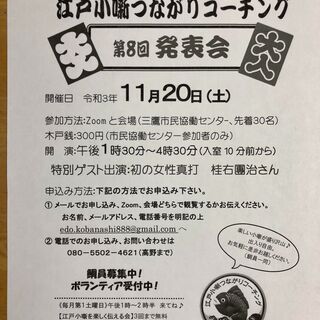 江戸小噺つながりコーチング
第8回 発表会
大入
開催日 令和3年 11月20日(土)
参加方法:Zoomと会場(三鷹市民協働センター、先着30名)
木戸銭:300円(市民協働センター参加者のみ)
開 演:午後1時30分~4時30分(入室10分前から)
特別ゲスト出演:初の女性真打 桂右團治さん
申込み方法:下記の方法でお申込み下さい。
①メールでお申し込み、Zoom、会場どちらで観覧するかお伝えください。
お名前、メールアドレス、電話番号を明記の上
edo.kobanashi888@gmail.com へ
②電話でのお申し込み、お問い合わせは
080-5502-4621(高野まで)
楽しい小噺が盛り沢山♪
出入り自由。
お気軽に是非お越しください。
(網員一同)
網員募集中!
ボランティア受付中!
《毎月第1土曜日》午後1時~2時半 来てね♪
【江戸小噺を楽しく伝える会】3回まで無料
江戸小噺つながりコーチング